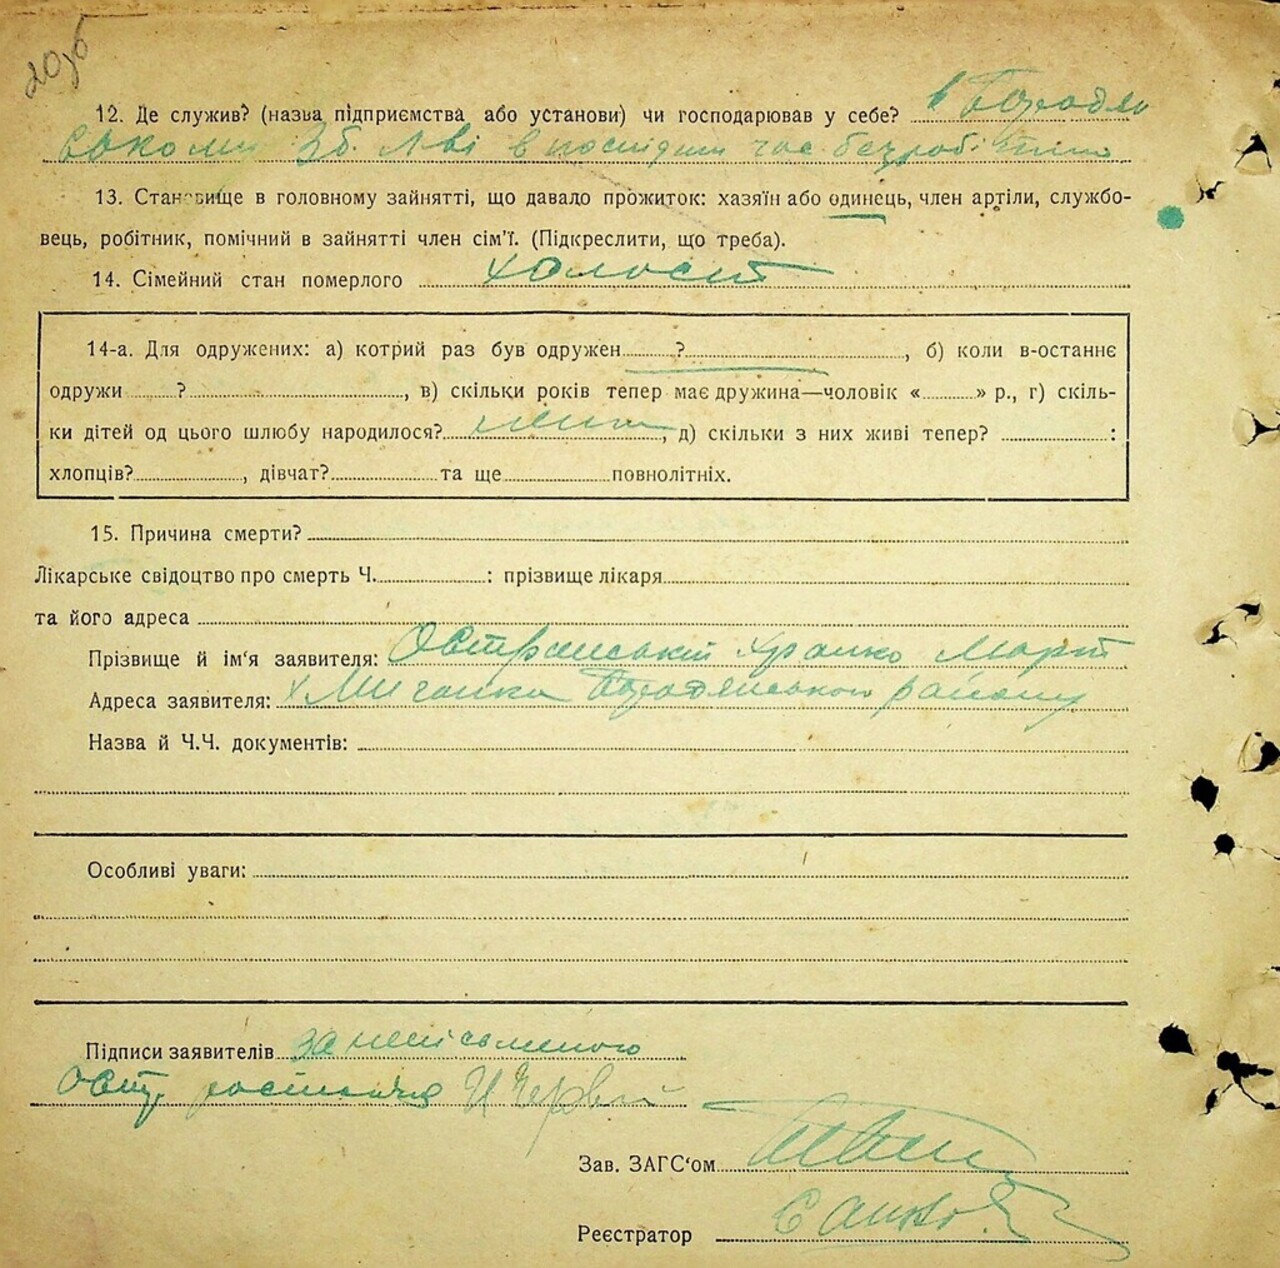 20зб
12. Де служив? (назва підприємства або установи) чи господарював у себе? в Бородян
в послідни час безробітний
13. Становище в головному зайнятті, що давало прожиток: хазяїн або одинець, член артіли, службо-
вець, робітник, помічний в зайнятті член сім'ї. (Підкреслити, що треба).
14. Сімейний стан померлого холост
14-а. Для одружених: а) котрий раз був одружен ? , б) коли в-останнє
одружи ? , в) скільки років тепер має дружина—чоловік « » р., г) скіль-
ки дітей од цього шлюбу народилося? , д) скільки з них живі тепер? :
хлопців? , дівчат? та ще повнолітніх.
15. Причина смерти?
Лікарське свідоцтво про смерть Ч. : прізвище лікаря
та його адреса
Прізвище й ім'я заявителя:
Адреса заявителя: х Мигалки Бородянського району
Назва й Ч.Ч. документів:
Особливі уваги:
Підписи заявителів за неписьменого
Зав. ЗАГС'ом
Реєстратор